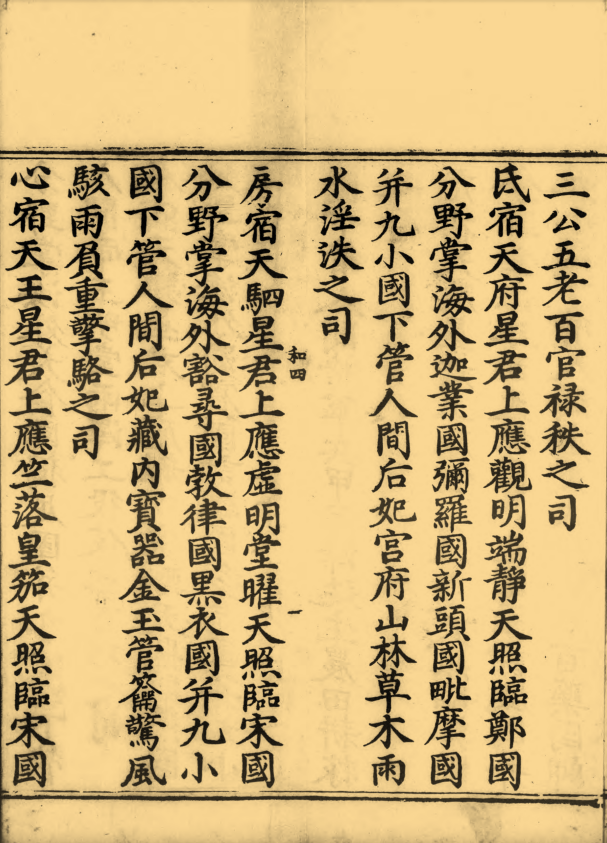 三公五老百官禄秩之司
氐宿天府星君上應觀明端靜天照臨鄭國
分野掌海外迦業國彌羅國新頭國毗摩國
并九小國下管人間后妃宫府山林草木雨
水淫泆之司
房宿天駟星君上應虛明堂曜天照臨宋國
和四
分野掌海外豁尋國敦律國黑衣國并九小
國下管人間后妃藏内寶器金玉管籥驚風
駭雨負重擊駱之司
心宿天王星君上應竺落皇笳天照臨宋國